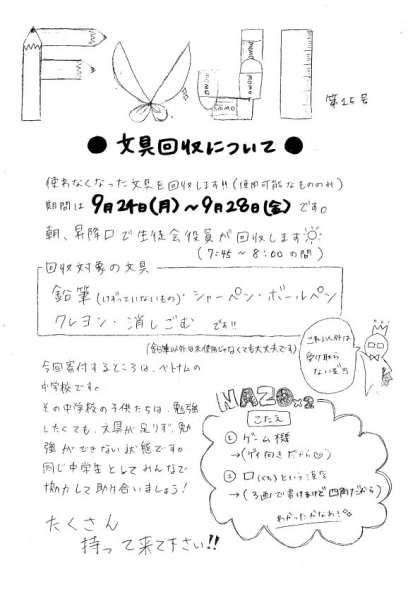 FUJI
第15号
●文具回収について●
使わなくなった文具を回収します!!(使用可能なもののみ)
期間は9月24日(月)～9月28日(金)です。
朝、昇降口で生徒会役員が回収します
(7:45～8:00の間)
回収対象の文具
鉛筆(けずっていないもの)・シャーペン・ボールペン
クレヨン・消しごむ です!!
(鉛筆以外は未使用じゃなくても大丈夫です)
これ以外は
受け取ら
ないぜ
今回寄付するところは、ベトナムの
中学校です。
その中学校の子供たちは、勉強
したくても、文具が足りず、勉
強ができない状態です。
同じ中学生としてみんなで
協力して助け合いましょう!
たくさん
持って来て下さい!!
NAZO×2
こたえ
① ゲーム機
→(ゲイ向きだから)
② 口(くち)という漢字
→(3画で書けるけど四角だから)
わかったかなぁ?